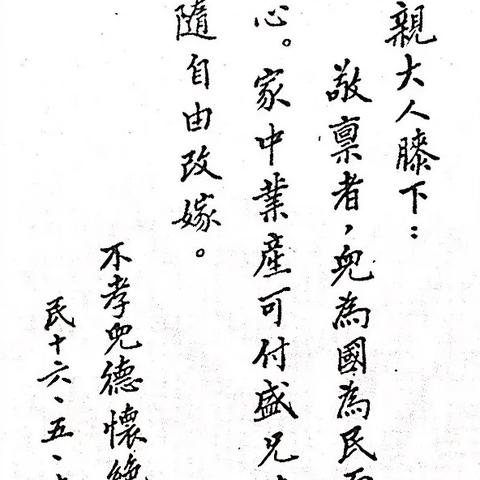 親大人膝下：
敬禀者，兒為國為民
心。家中業產可付盛兄
隨自由改嫁。
不孝兒德懷絶
民十六、五、